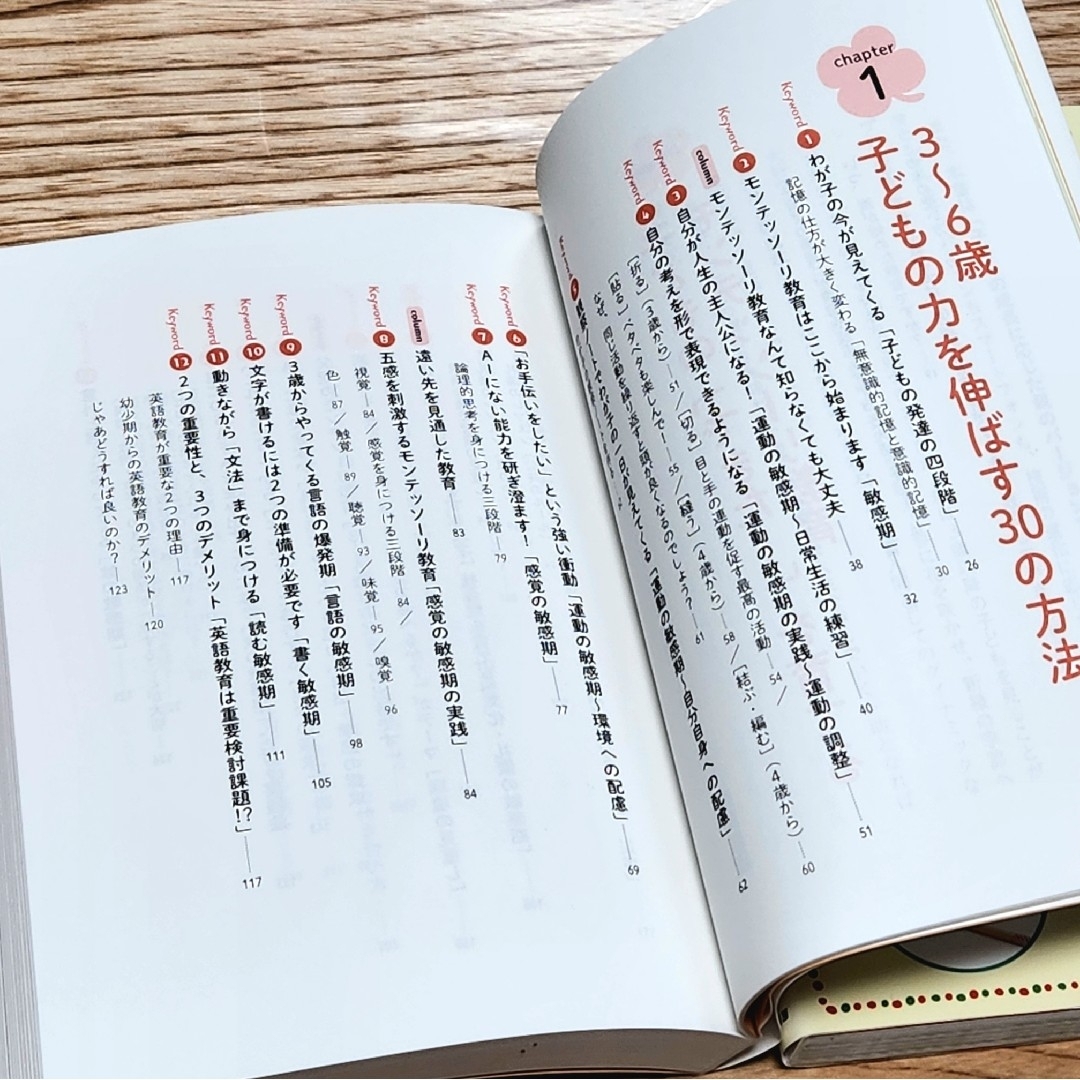 chapter
1
3～6歳
子どもの力を伸ばす30の方法
Keyword 1 わが子の今が見えてくる「子どもの発達の四段階」 26
記憶の仕方が大きく変わる「無意識的記憶と意識的記憶」 30
Keyword 2 モンテッソーリ教育はここから始まります「敏感期」 32
column モンテッソーリ教育なんて知らなくても大丈夫 38
Keyword 3 自分が人生の主人公になる！「運動の敏感期～日常生活の練習」 40
Keyword 4 自分の考えを形で表現できるようになる「運動の敏感期の実践～運動の調整」 51
［折る］（3歳から）―51／［切る］目と手の運動を促す最高の活動―54／
［貼る］ペタペタも楽しんで！―55／［縫う］（4歳から）―58／［結ぶ・編む］（4歳から） 60
なぜ、同じ活動を繰り返すと頭が良くなるのでしょう？―61
5
わが子の一日が見えてくる「運動の敏感期～自分自身への配慮」 62
Keyword 6 「お手伝いをしたい」という強い衝動「運動の敏感期～環境への配慮」 69
Keyword 7 AIにない能力を研ぎ澄ます！「感覚の敏感期」 77
論理的思考を身につける三段階 79
column 遠い先を見通した教育 83
Keyword 8 五感を刺激するモンテッソーリ教育「感覚の敏感期の実践」 84
視覚―84／感覚を身につける三段階―84／
色―87／触覚―89／聴覚―93／味覚―95／嗅覚―96
Keyword 9 3歳からやってくる言語の爆発期「言語の敏感期」 98
Keyword 10 文字が書けるには2つの準備が必要です「書く敏感期」 105
Keyword 11 動きながら「文法」まで身につける「読む敏感期」 111
Keyword 12 2つの重要性と、3つのデメリット「英語教育は重要検討課題!?」 117
英語教育が重要な2つの理由―117
幼少期からの英語教育のデメリット―120
じゃあどうすれば良いのか？―123